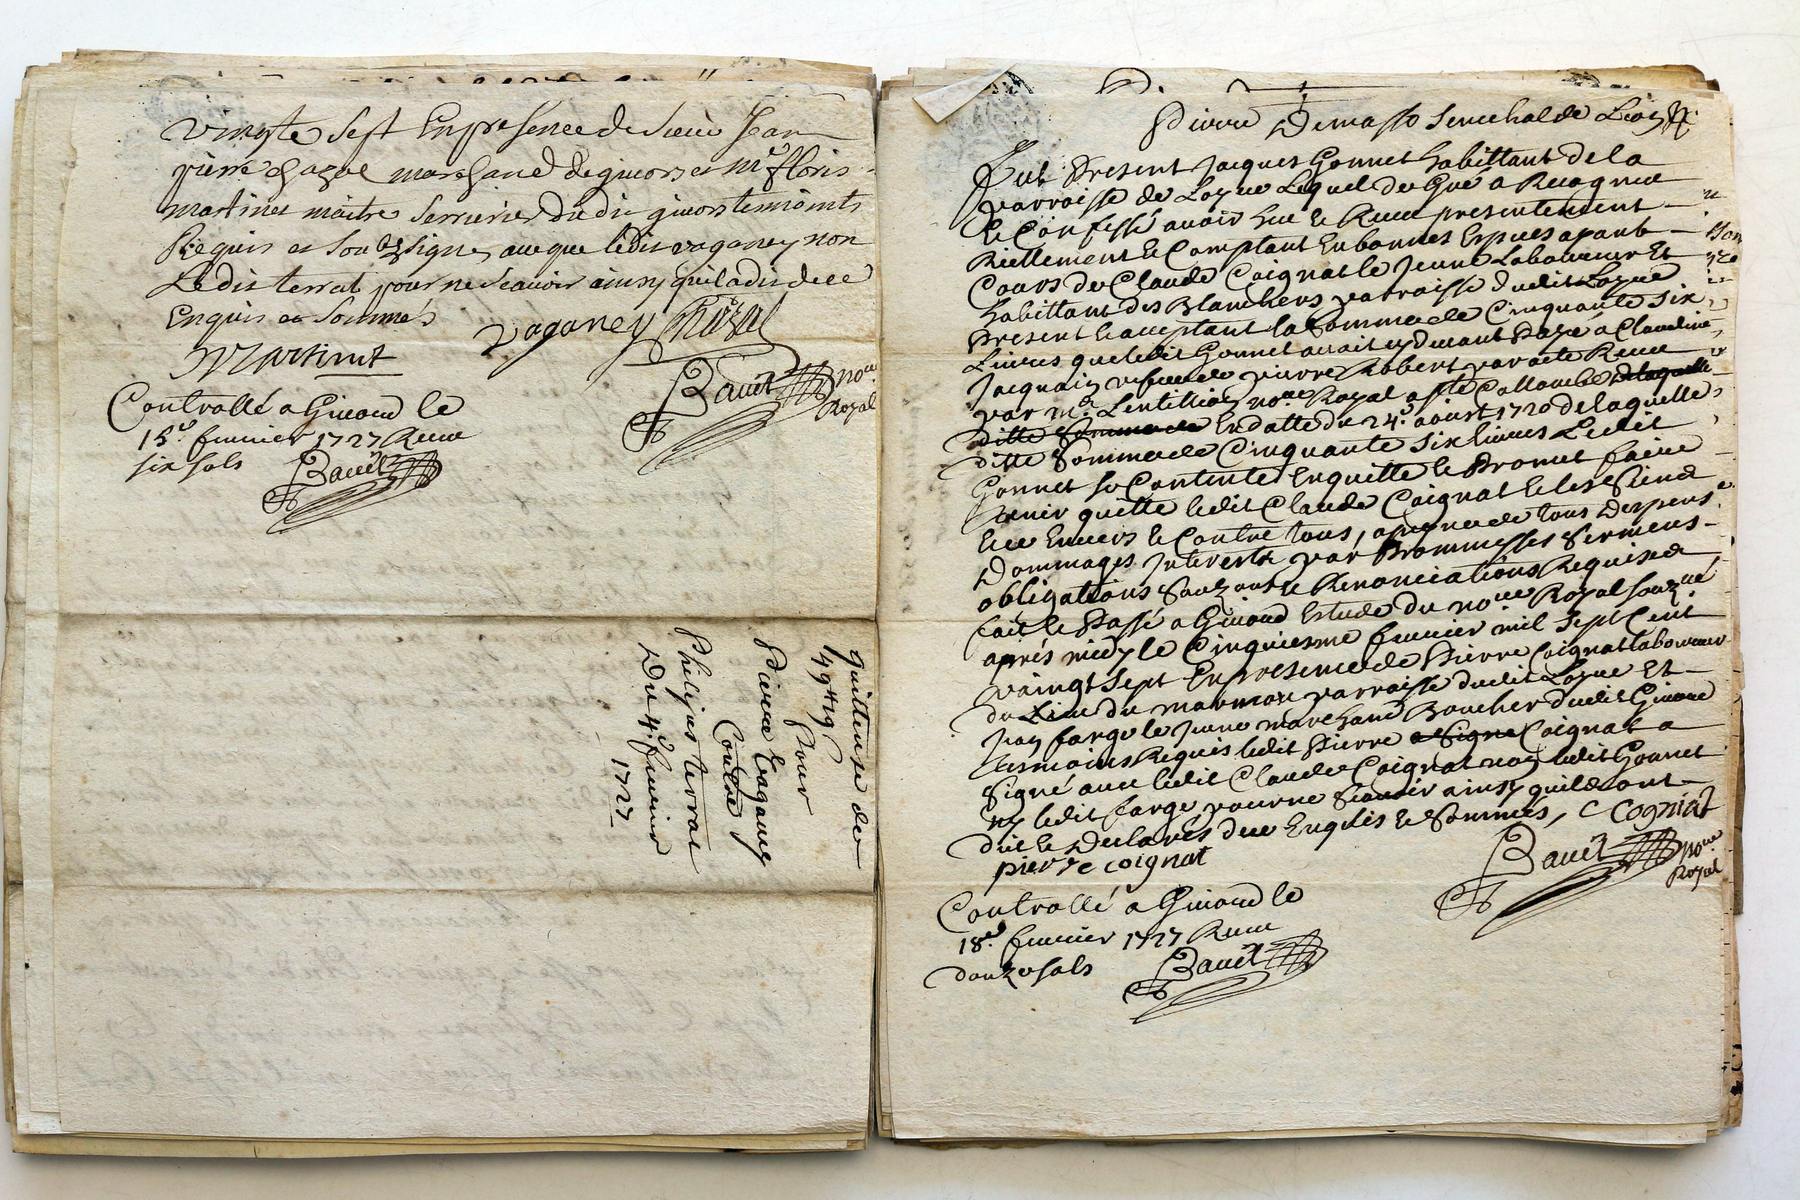 vingte sept En presence de Sieur Jean
pierre chazal marchand de givors et Mre floris
martinet maitre Serrurier dudit givors temoints
Requis et Soubzsigne, avec que ledit vaganey non
Ledit terrat pour ne Scavoir ainsy quil a dit de ce
Enquis et Sommés
vaganey Chazal
Martinet
Bauet nore
Royal
Controllé a Givord le
15e fevrier 1727 Receu
six sols Bauet
quittense de
49lt 19s
pour
Pierre Vaganey
Contre
Philipes terrat
Du 4e fevrier
1727
Pierre Demasso Senechal de Lion
Fut Present Jacques Gonnet habittant de la
parroisse de Loyre Lequel de Gré a Recognu
Et Confessé avoir heu et Receu presentement
Reellement et Comptant En bonnes Especes ayant
Cours de Claude Coignat le Jeune Laboureur Et
habittant des Blanchers parroisse dudit Loyre
Present et acceptant la Somme de Cinquante Six
Livres que ledit Gonnet auroit cy devant Payé a Claudine
Jacquain vefve de pierre Robert par acte Receu
par Me Lentillion nore Royal a Ste Collombe de laquelle
ditte Somme de En datte du 24e aoust 1720 de laquelle
ditte Somme de Cinquante Six livres Ledit
Gonnet se Contente En quitte et Promet faire
tenir quitte ledit Claude Coignat et les Siens
Envers et Contre tous, a peyne de tous Despens
Dommages Interests par Prommesses Sermens
obligations Renonciations Requises
fait et Passé a Givord Estude du nore Royal Souzné
aprés midy le Cinquiesme fevrier mil Sept Cent
vaingt Sept En presence de Pierre Coignat laboureur
du Lieu du parroisse dudit Loyre Et
Jean farge le Jeune marchand Boucher dudit Givord
temoins Requis ledit Pierre a Signé Coignat a
Signé avec ledit Claude Coignat non ledit Gonnet
ny ledit farge pour ne Scavoir ainsy quils ont
dit et Declarés de ce Enquis et Sommés, C Cogniat
pierre coignat
Bauet nore
Royal
Controllé a Givord le
18e fevrier 1727 Receu
douze sols Bauet